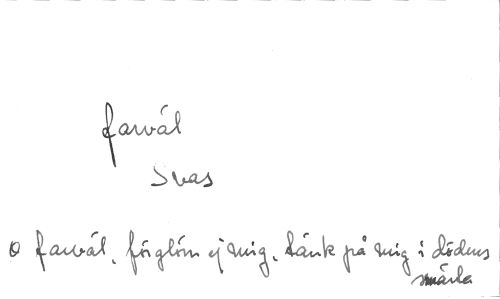 farväl
Svas
o farväl, förglöm ej mig, tänk på mig i dödens
smärta